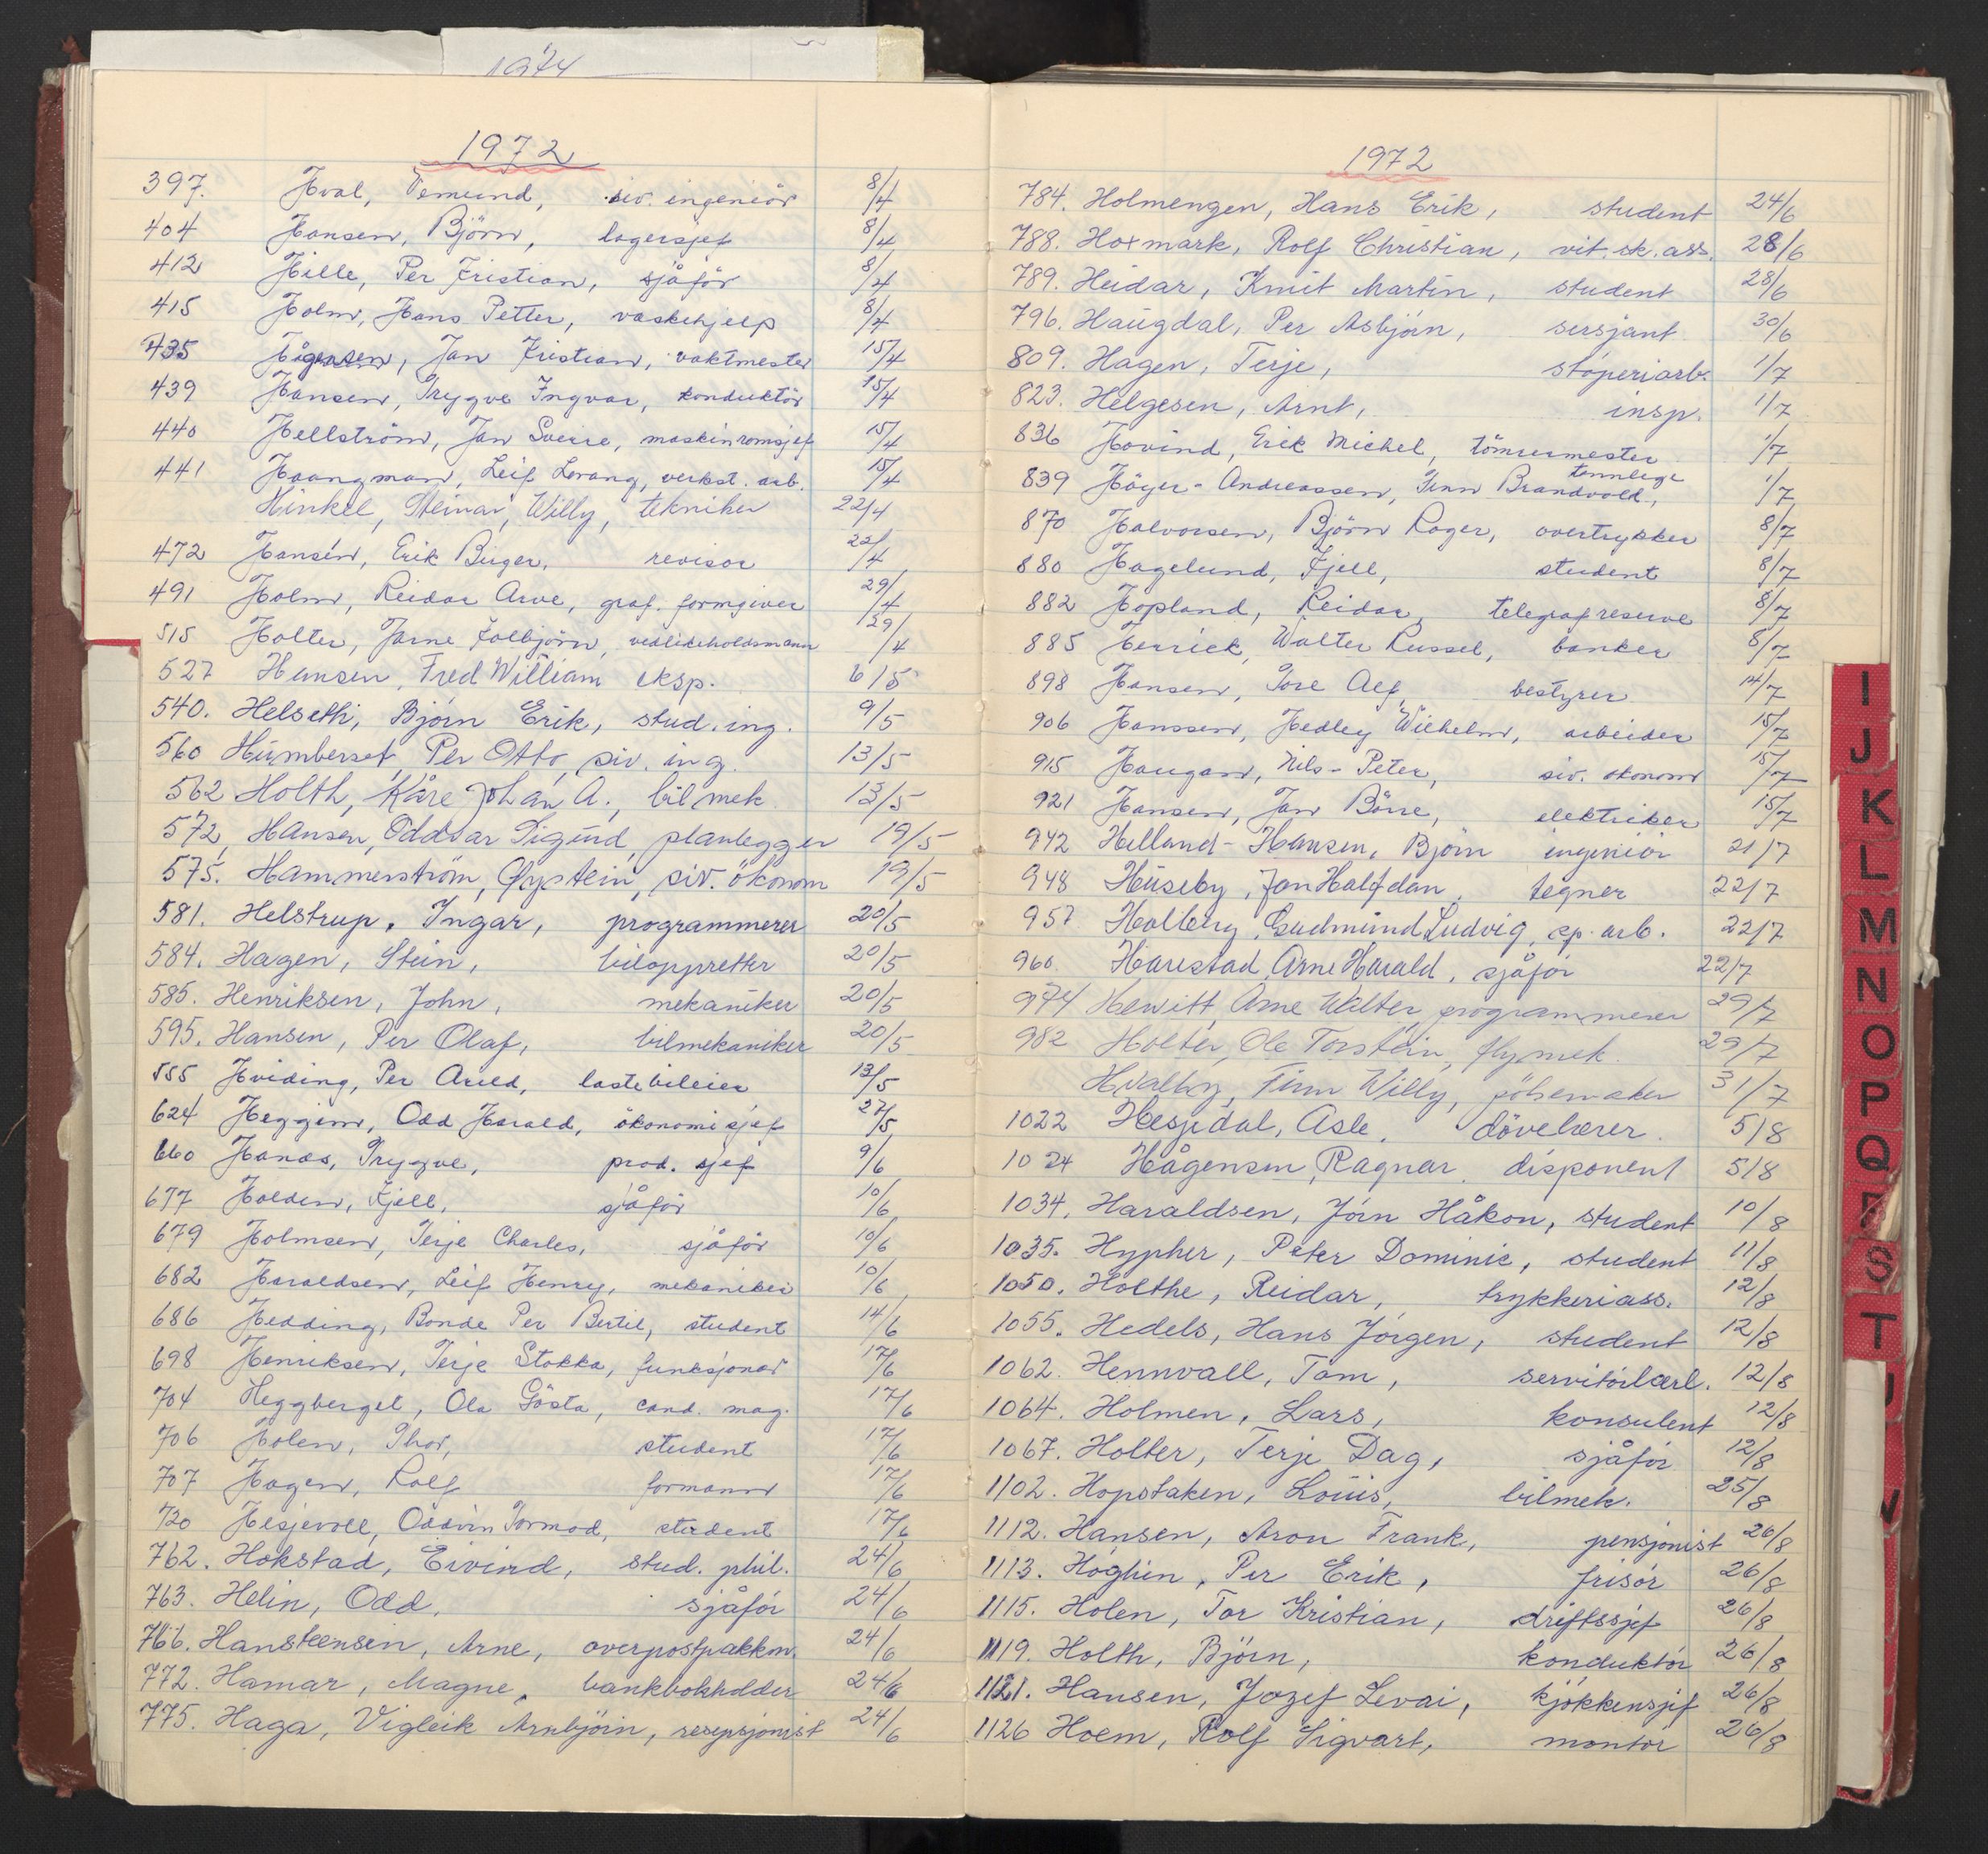 1974
1972
397. Hval, Vemund, siv. ingeniör 8/4
404 Hansen, Björn, lagersjef 8/4
412 Hille, Per Kristian, sjåför 8/4
415 Holm, Hans Petter, vaskehjelp 8/4
435 Hågensen, Jan Kristian, vaktmester 15/4
439 Hansen, Trygve Ingvar, konduktör 15/4
440 Hellström, Jan Sverre, maskinromsjef 15/4
441 Haangman, Leif Levang, verkst. arb. 15/4
Hinkel, Steinar, Willy, tekniker 22/4
472 Hansén, Erik Birger, revisor 22/4
491 Holm, Reidar Arve, graf. formgiver 29/4
515 Holter, Jarne Kolbjörn, vedlikeholdsmann 29/4
527 Hansen, Fred William eksp. 6/5
540. Helseth, Bjørn Erik, stud. ing. 9/5
560 Humberset, Per Otto, siv. ing. 13/5
562 Holth, Kåre Johan A., bilmek. 13/5
572, Hansen, Oddvar Sigurd, planlegger 19/5
575. Hammerström, Øystein, siv. ökonom 19/5
581. Helstrup, Ingar, programmerer 20/5
584. Hagen, Stein, biloppretter 20/5
585. Henriksen, John, mekaniker 20/5
595. Hansen, Per Olaf, bilmekaniker 20/5
555 Hviding, Per Arild, lastebileier 13/5
624 Heggem, Odd Harald, ökonomisjef 27/5
660 Hanæs, Trygve, prod. sjef 9/6
677 Holden, Kjell, sjåför 10/6
679 Holmsen, Terje Charles, sjåför 10/6
682 Haraldsen, Leif Henry, mekaniker 10/6
686 Hedding, Bonde Per Bertil, student 14/6
698 Henriksen, Terje Stokka, funksjonær 17/6
704 Heggberget, Ola Gösta, cand. mag. 17/6
706 Holen, Thor, student 17/6
707 Hagen, Rolf formann 17/6
720 Hesjevoll, Oddvin Tormod, student 17/6
762. Hokstad, Eivind, stud. phil. 24/6
763. Helin, Odd, sjåfór 24/6
766. Hansteensen, Arne, overpostpakkm. 24/6
772. Hamar, Magne, bankbokholder 24/6
775. Haga, Vigleik Arnbjörn, resepsjonist 24/6
1972
784. Holmengen, Hans Erik, student 24/6
788. Hoxmark, Rolf Christian, vit. sk. ass. 28/6
789. Heidar, Knut Martin, student 28/6
796. Haugdal, Per Asbjörn, sersjant 30/6
809. Hagen, Terje, stöperiarb. 1/7
823. Helgesen, Arnt, insp. 1/7
836 Hovind, Erik Michel, tömrermester 1/7
839 Höyer-Andreassen, Finn Brandvold, tannlege 1/7
870 Halvorsen, Björn Roger, overtrykker 8/7
880 Hagelund, Kjell, student 8/7
882 Hopland, Reidar, telegrafreserve 8/7
885 Herrick, Walter Russel, banker 8/7
898 Hansen, Tore Alf, bestyrer 14/7
906 Hanssen, Hedley Wilhelm, arbeider 15/7
915 Haugan, Nils-Peter, siv. økonom 15/7
921 Hansen, Jan Börre, elektriker 15/7
942 Helland-Hansen, Björn ingeniör 21/7
948 Huseby, Jan Halfdan, tegner 22/7
957 Holberg, Gudmund Ludvig, sp. arb. 22/7
960. Harestad, Arne Harald, sjåför 22/7
974 Hewitt, Arne Walter, programmerer 29/7
982 Holter, Ole Torstein, flymek. 29/7
Hvalby, Finn Willy, pölsemaker 31/7
1022 Hesjedal, Asle, dövelærer. 5/8
1024 Hågensen, Ragnar, disponent 5/8
1034. Haraldsen, Jörn Håkon, student 10/8
1035. Hypher, Peter Dominic, student 11/8
1050. Holthe, Reidar, trykkeriass. 12/8
1055. Hedels, Hans Jörgen, student 12/8
1062. Hennvall, Tom, servitörlærl. 12/8
1064. Holmen, Lars, konsulent 12/8
1067. Holter, Terje Dag, sjåfór 12/8
1102. Hopstaken, Louis, bilmek. 25/8
1112. Hansen, Aron Frank, pensjonist 26/8
1113. Höghin, Per Erik, frisör 26/8
1115. Holen, Tor Kristian, driftssjef 26/8
1119. Holth, Björn, konduktör 26/8
1121. Hansen, Jozef Levai, kjökkensjef 26/8
1126 Hoem, Rolf Sigvart, montör 26/8
I
J
K
L
M
N
O
P
Q
R
S
T